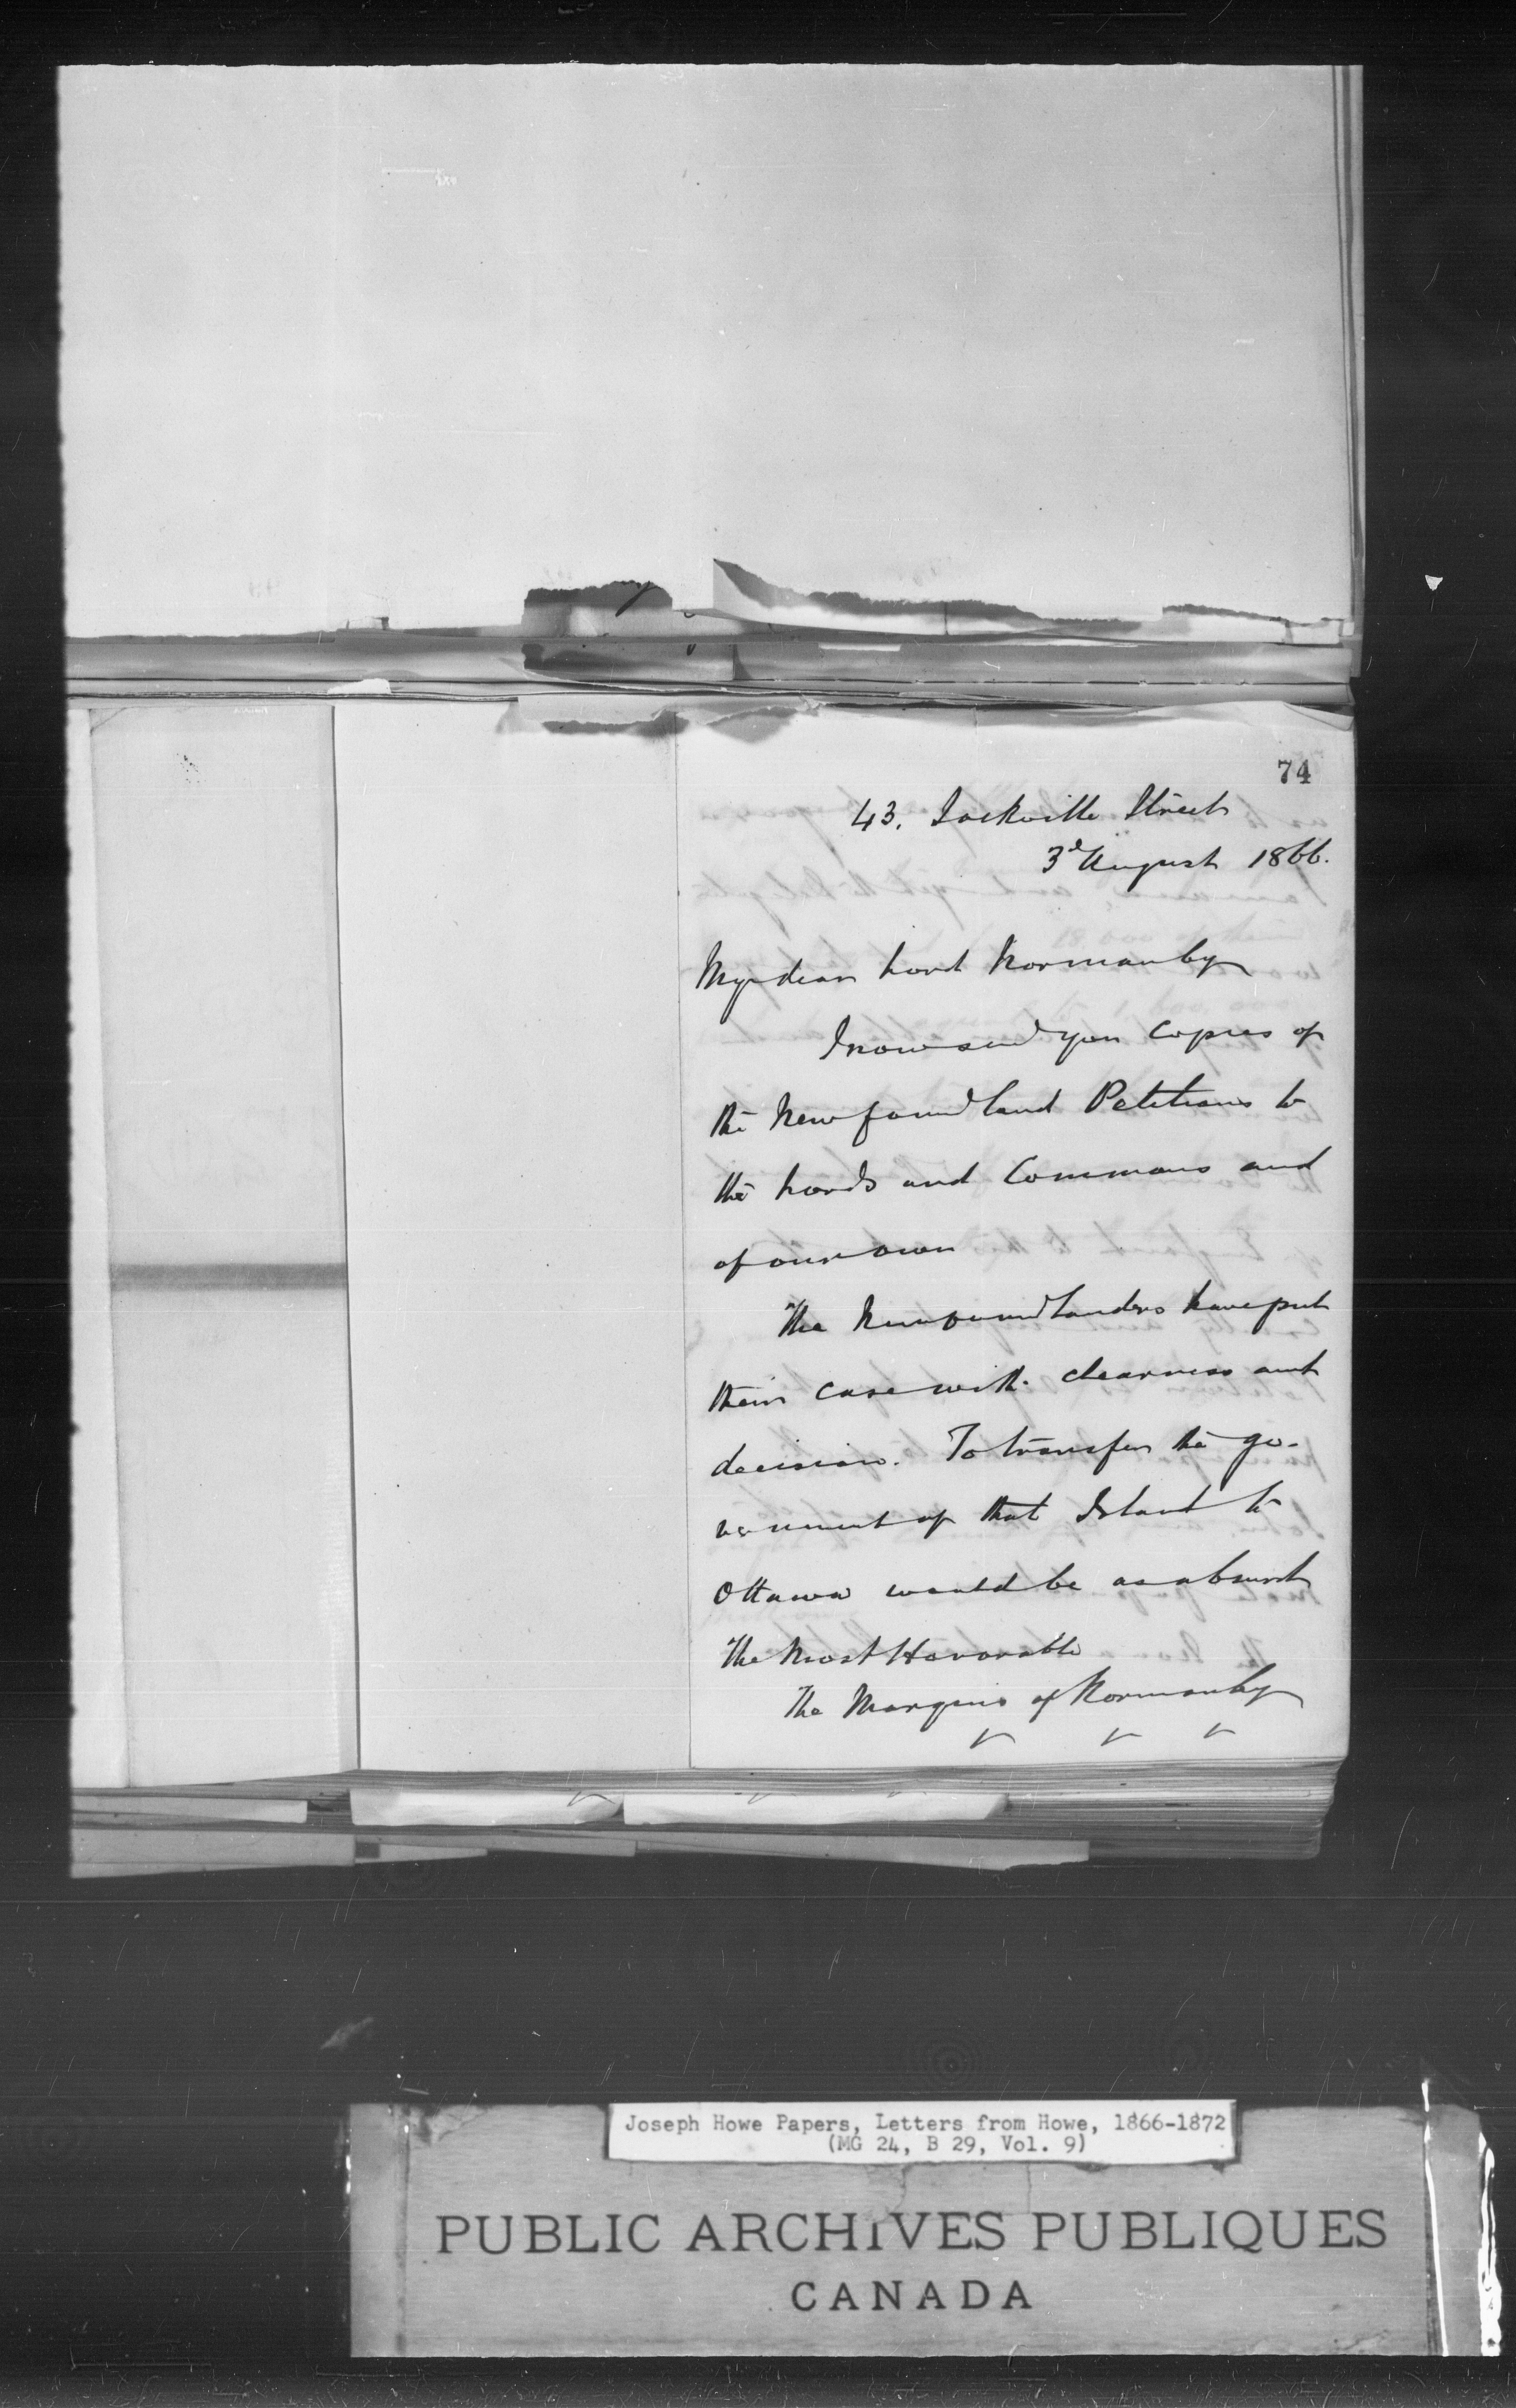 74
43. Sackville Street
3d August 1866.
My dear Lord Normanby
I now send you Copies of
the Newfoundland Petitions to
the Lords and Commons and
of our own
The Newfoundlanders have put
their case with clearness and
decision. To transfer the go-
vernment of that Island to
Ottawa would be as absurd
The Most Honorable
The Marquis of Normanby
Joseph Howe Papers, Letters from Howe, 1866-1872
(MG 24, B 29, Vol. 9)
PUBLIC ARCHIVES PUBLIQUES
CANADA